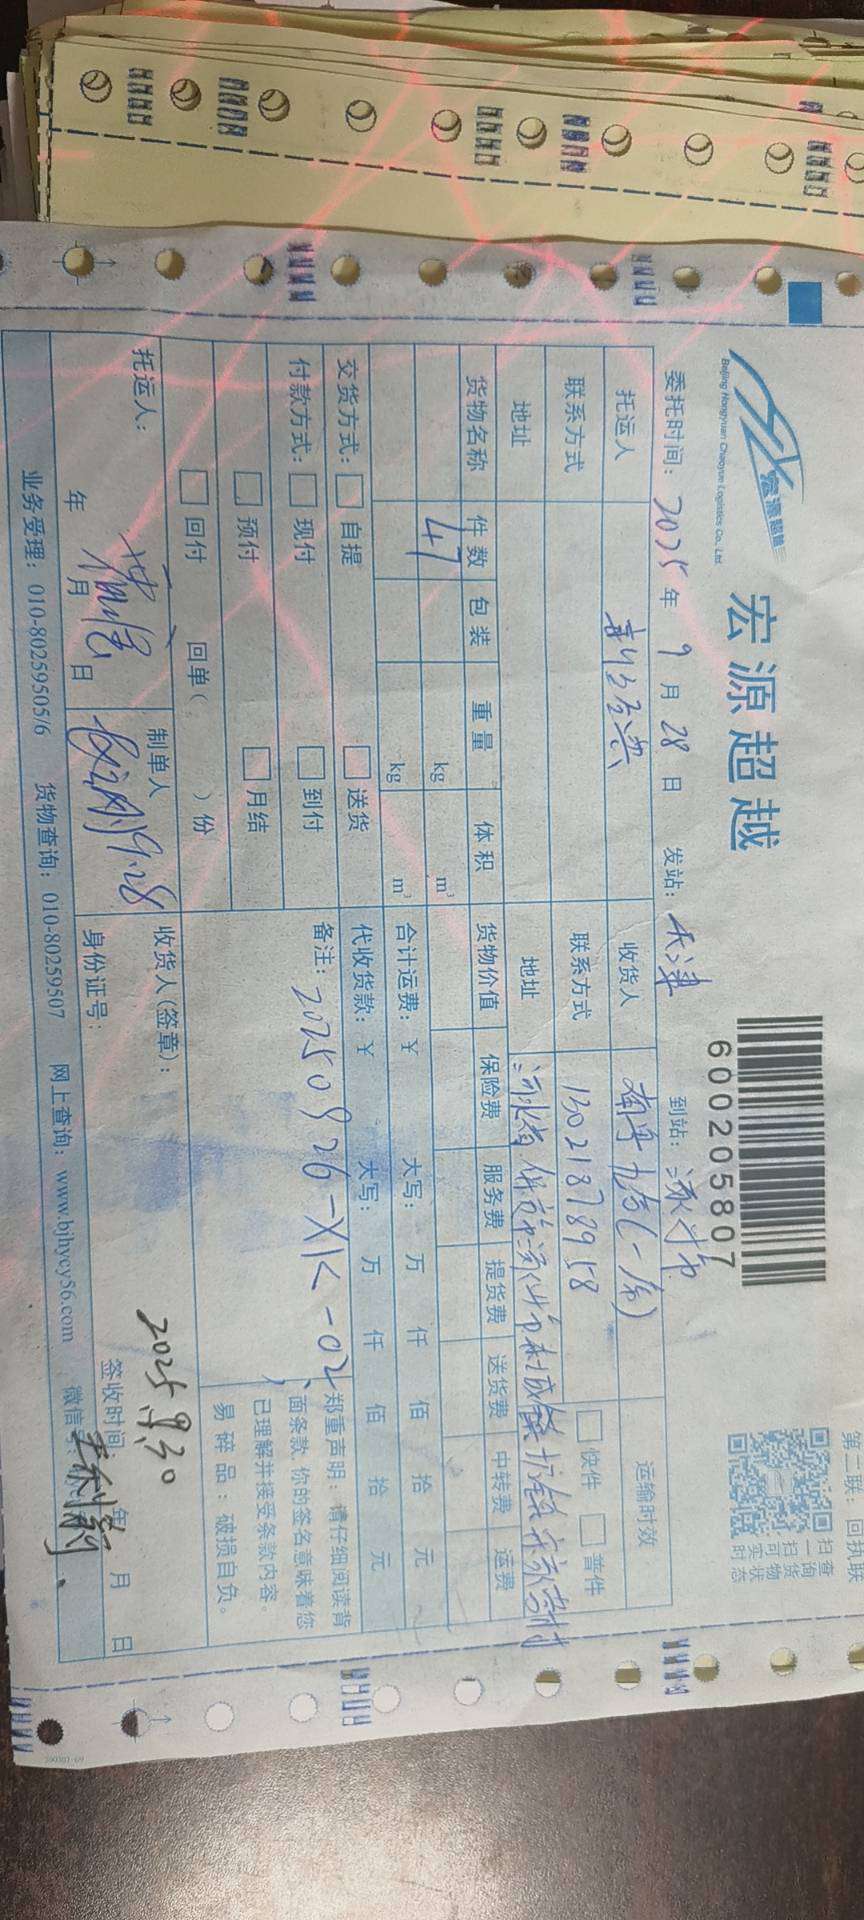 宏源超越
Beijing Hongyuan Chaoyue Logistics Co., Ltd.
宏源超越
600205807
第二联：回执联
扫一扫可实时
查询货物状态
委托时间：2025年9月28日 发站：天津 到站：涿州市
托运人 收货人 运输时效
联系方式 联系方式 13021878958 快件 普件
地址 地址 河北省保定市涿州市
货物名称 件数 包装 重量 体积 货物价值 保险费 服务费 提货费 送货费 中转费 运费
47 kg m³
kg m³
合计运费：¥ 大写： 万 仟 佰 拾 元
交货方式： 自提 送货 代收货款：¥ 大写： 万 仟 佰 拾 元
付款方式： 现付 到付
预付 月结
回付 回单（ ）份
备注：20250926-XK-02
郑重声明：请仔细阅读背
面条款，你的签名意味着您
已理解并接受条款内容。
易碎品：破损自负。
托运人：
年 月 日
制单人
9.28
收货人(签章)：
身份证号：
2025.9.30
签收时间： 年 月 日
业务受理：010-80259505/6 货物查询：010-80259507 网上查询：www.bjhycy56.com 微信号